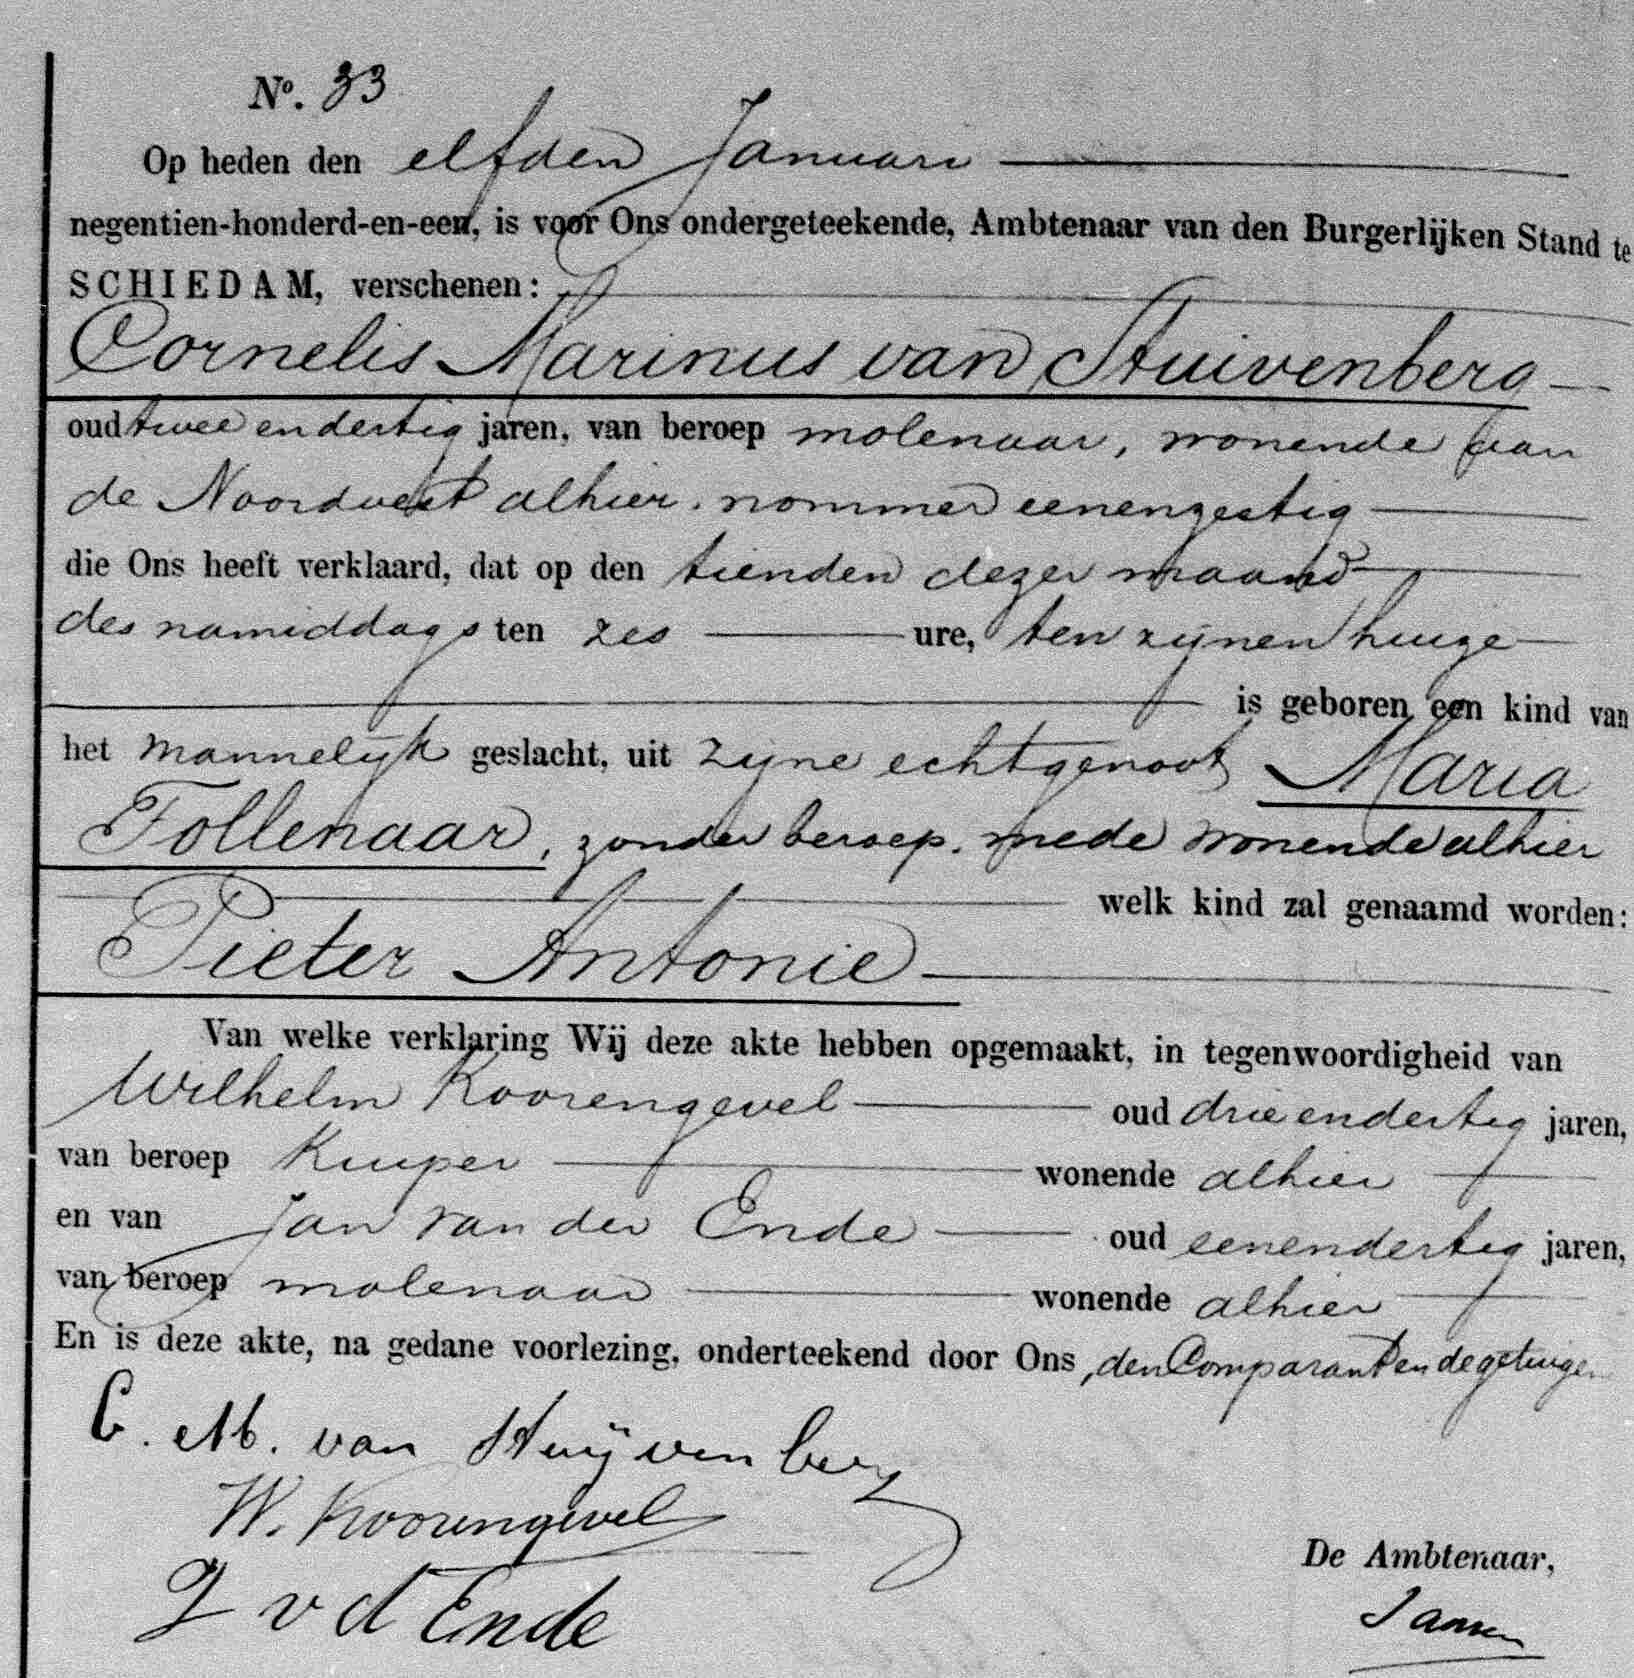 No. 33
Op heden den elfden Januari
negentien-honderd-en-een, is voor Ons ondergeteekende, Ambtenaar van den Burgerlijken Stand te
SCHIEDAM, verschenen:
Cornelis Marinus van Stuivenberg
oud twee en dertig jaren, van beroep molenaar, wonende aan
de Noordvest alhier, nommer eenenzestig
die Ons heeft verklaard, dat op den tienden dezer maand
des namiddags ten zes ure, ten zijnen huize
is geboren een kind van
het mannelijk geslacht, uit zijne echtgenoot Maria
Tollenaar, zonder beroep, mede wonende alhier
welk kind zal genaamd worden:
Pieter Antonie
Van welke verklaring Wij deze akte hebben opgemaakt, in tegenwoordigheid van
Wilhelm Koorengevel oud drie en dertig jaren,
van beroep kuiper wonende alhier
en van Jan van der Ende oud eenendertig jaren,
van beroep molenaar wonende alhier
En is deze akte, na gedane voorlezing, onderteekend door Ons, den Comparant en de getuigen
C. M. van Stuijvenberg
W. Koorengevel
J v d Ende
De Ambtenaar,
Jansen